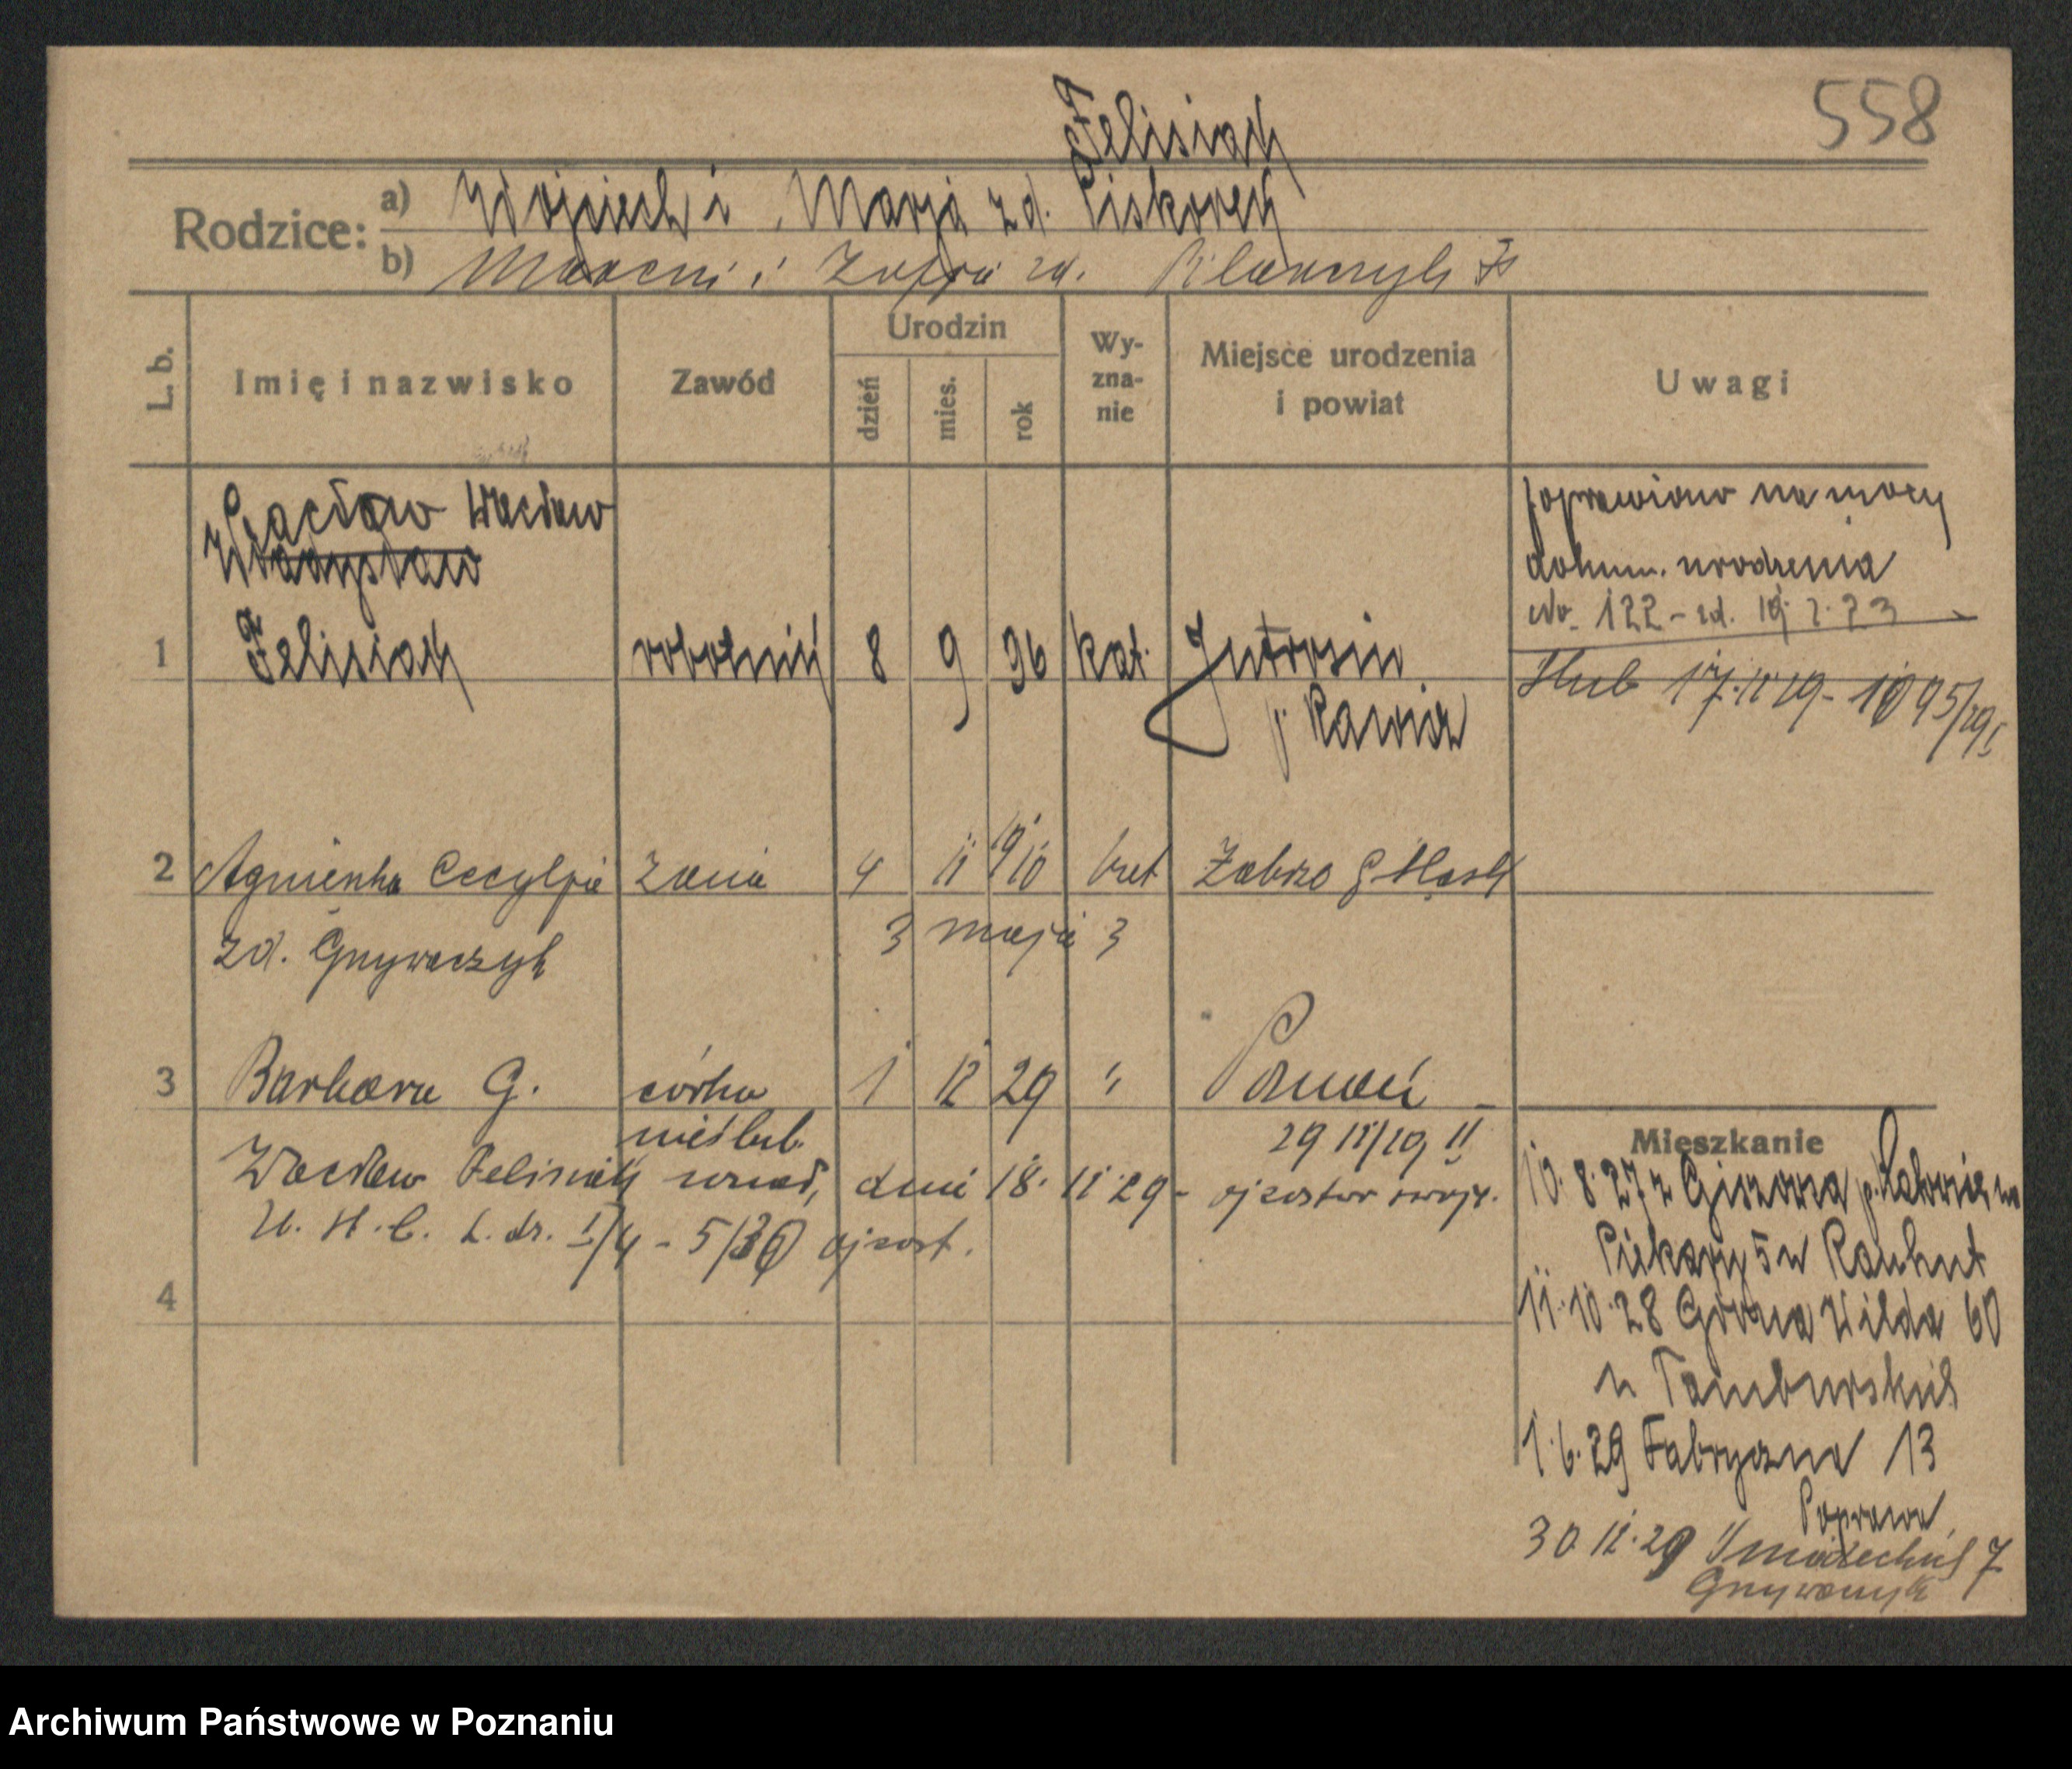 558
Felisiak
Rodzice: a) Wojciech i Marja zd. Piskorek
b) Marcin i Zofja zd.
L. b. Imię i nazwisko Zawód Urodzin dzień mies. rok Wyznanie Miejsce urodzenia i powiat Uwagi
Wacław Wacław
Władysław
poprawiono na mocy
dokum. urodzenia
No. 122 - zd. 19. 2. 23
1 Felisiak robotnik 8 9 96 kat. Jutrosin
p. Rawicz
Ślub 17. 11 29 - 1095/29
2 Agnieszka Cecylja żona 4 11 1910 kat Zabrze G Śląsk
zd. Gnywaczyk
3 maja 3
3 Barbara G. córka 1 12 29 " Poznań
nieślub. 29 11/29 II
Wacław Felisiak uznał, dnia 18. 12 29 - ojcostwo swoje.
U. S. C. L. dz. I/4 - 5/30 ojcost.
4
Mieszkanie
10. 8. 27 z Giszowa p. Katowice na
Piekary 5 u Rauhut
11. 10. 28 Górna Wilda 60
u Tamburski
1. 6. 29 Fabryczna 13
Poprawa
30 12. 29 Śniadeckich 7
Gnywaczyk
Archiwum Państwowe w Poznaniu